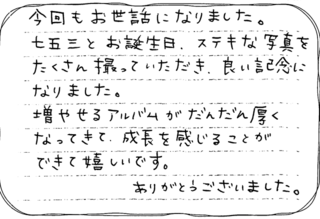 今回もお世話になりました。
七五三とお誕生日、ステキな写真を
たくさん撮っていただき、良い記念に
なりました。
増やせるアルバムがだんだん厚く
なってきて、成長を感じることが
できて嬉しいです。
ありがとうございました。